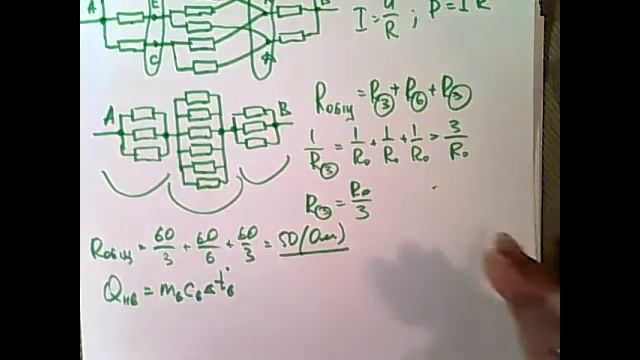 A E B
C
I = U/R ; P = I R
A B
Rобщ = R③ + R⑥ + R③
1/R③ = 1/R₀ + 1/R₀ + 1/R₀ = 3/R₀
R③ = R₀/3
Rобщ = 60/3 + 60/6 + 60/3 = 50 (Ом)
Qнв = mв cв Δtв°